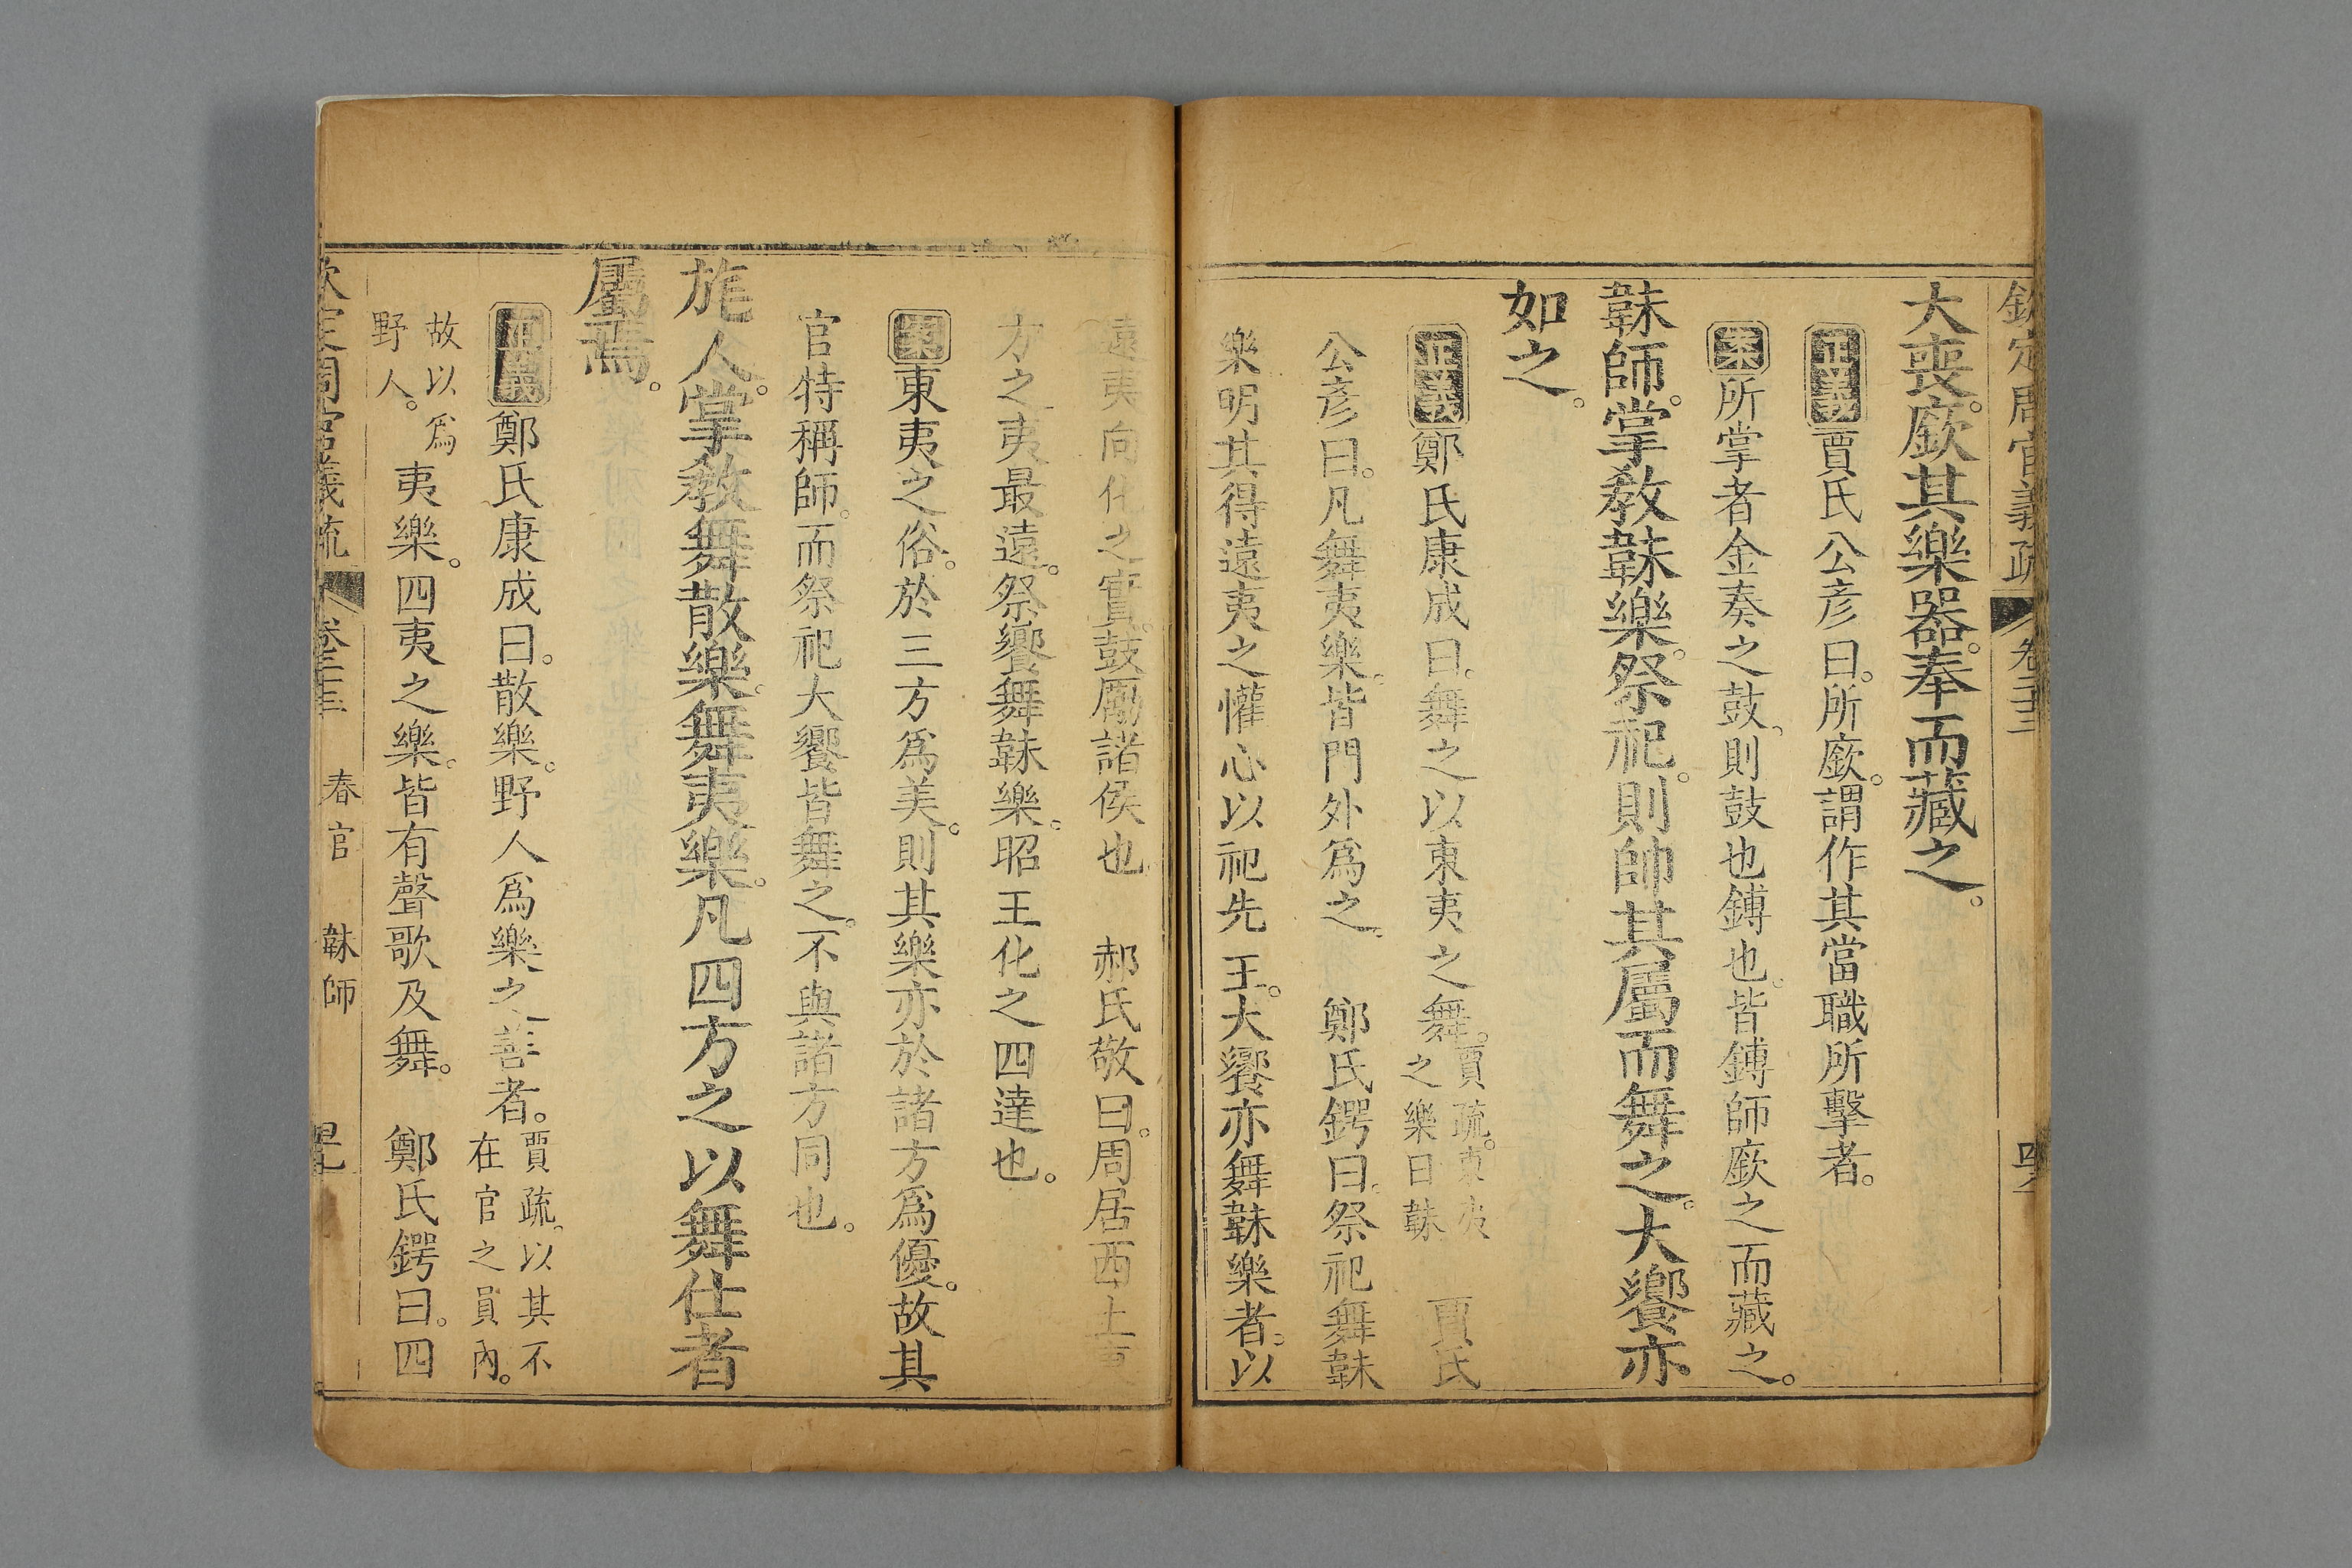 欽定周官義疏 卷三十三
大喪。廞其樂器。奉而藏之。
正義 賈氏公彦曰。所廞。謂作其當職所擊者。
案 所掌者金奏之鼓、則鼓也鎛也。皆鎛師廞之而藏之。
韎師。掌教韎樂。祭祀。則帥其屬而舞之。大饗亦
如之。
正義 鄭氏康成曰。舞之以東夷之舞。賈疏。東夷之樂曰韎 賈氏
公彦曰。凡舞夷樂。皆門外爲之。 鄭氏鍔曰。祭祀舞韎
樂明其得遠夷之懽心以祀先王。大饗亦舞韎樂者。以
遠夷向化之實。鼓厲諸侯也 郝氏敬曰。周居西土東
方之夷最遠。祭饗舞韎樂。昭王化之四達也。
案 東夷之俗。於三方爲美。則其樂亦於諸方爲優。故其
官特稱師。而祭祀大饗皆舞之。不與諸方同也。
旄人。掌教舞散樂。舞夷樂。凡四方之以舞仕者
屬焉。
正義 鄭氏康成曰。散樂。野人爲樂之善者。賈疏。以其不在官之員內。
故以爲野人。夷樂。四夷之樂。皆有聲歌及舞。 鄭氏鍔曰。四
欽定周官義疏 卷三十三 春官 韎師